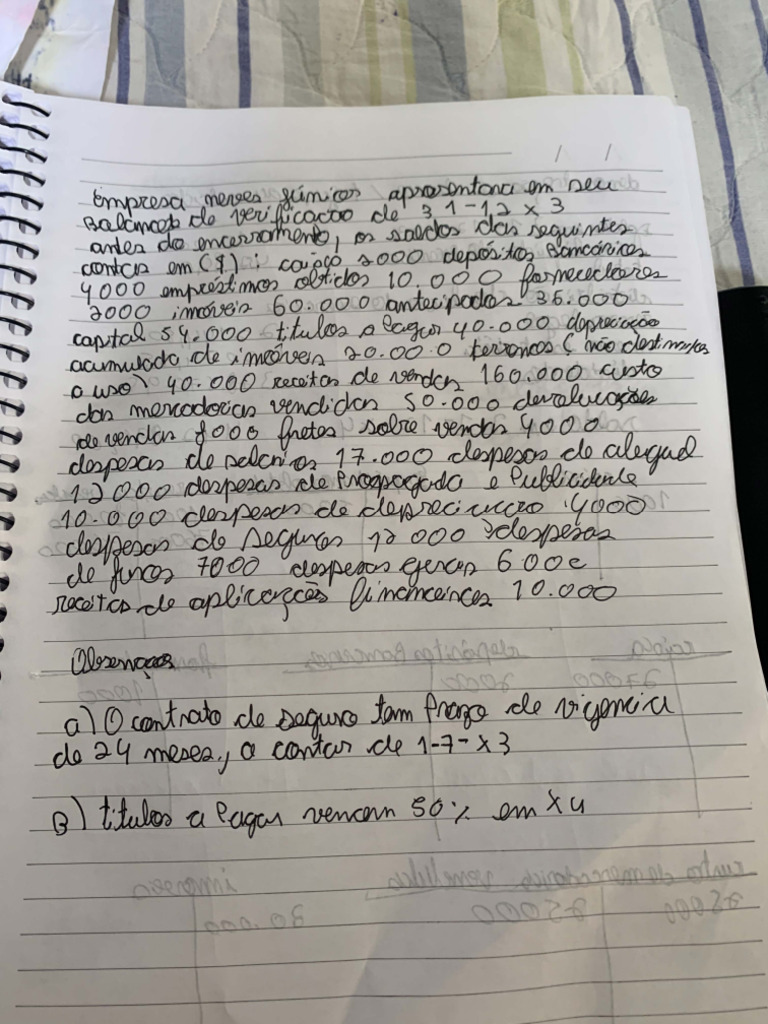 / /
Empresa neves químicos apresentava em seu
Balancete de verificacao de 31-12 x 3
antes do encerramento, os saldos das seguintes
contas em ($): caixa 2000 depósitos Bancários
4000 empréstimos obtidos 10.000 fornecedores
2000 imóveis 60.000 antecipados 36.000
capital 54.000 titulos a Pagar 40.000 depreciação
acumulada de imóveis 20.000 terrenos ( não destinados
a uso) 40.000 receitas de vendas 160.000 custo
das mercadorias vendidas 50.000 devoluções
de vendas 8000 fretes sobre vendas 4000
despesas de salários 17.000 despesas de aluguel
12000 despesas de Propagada e Publicidade
10.000 despesas de depreciacao 4000
despesas de seguros 12000 despesas
de juros 7000 despesas gerais 6000
receitas de aplicações financeiras 10.000
Observaçoes
a) O contrato de seguro tem Prazo de vigencia
de 24 meses, a contar de 1-7-x3
B) titulos a Pagar vencem 50% em x4